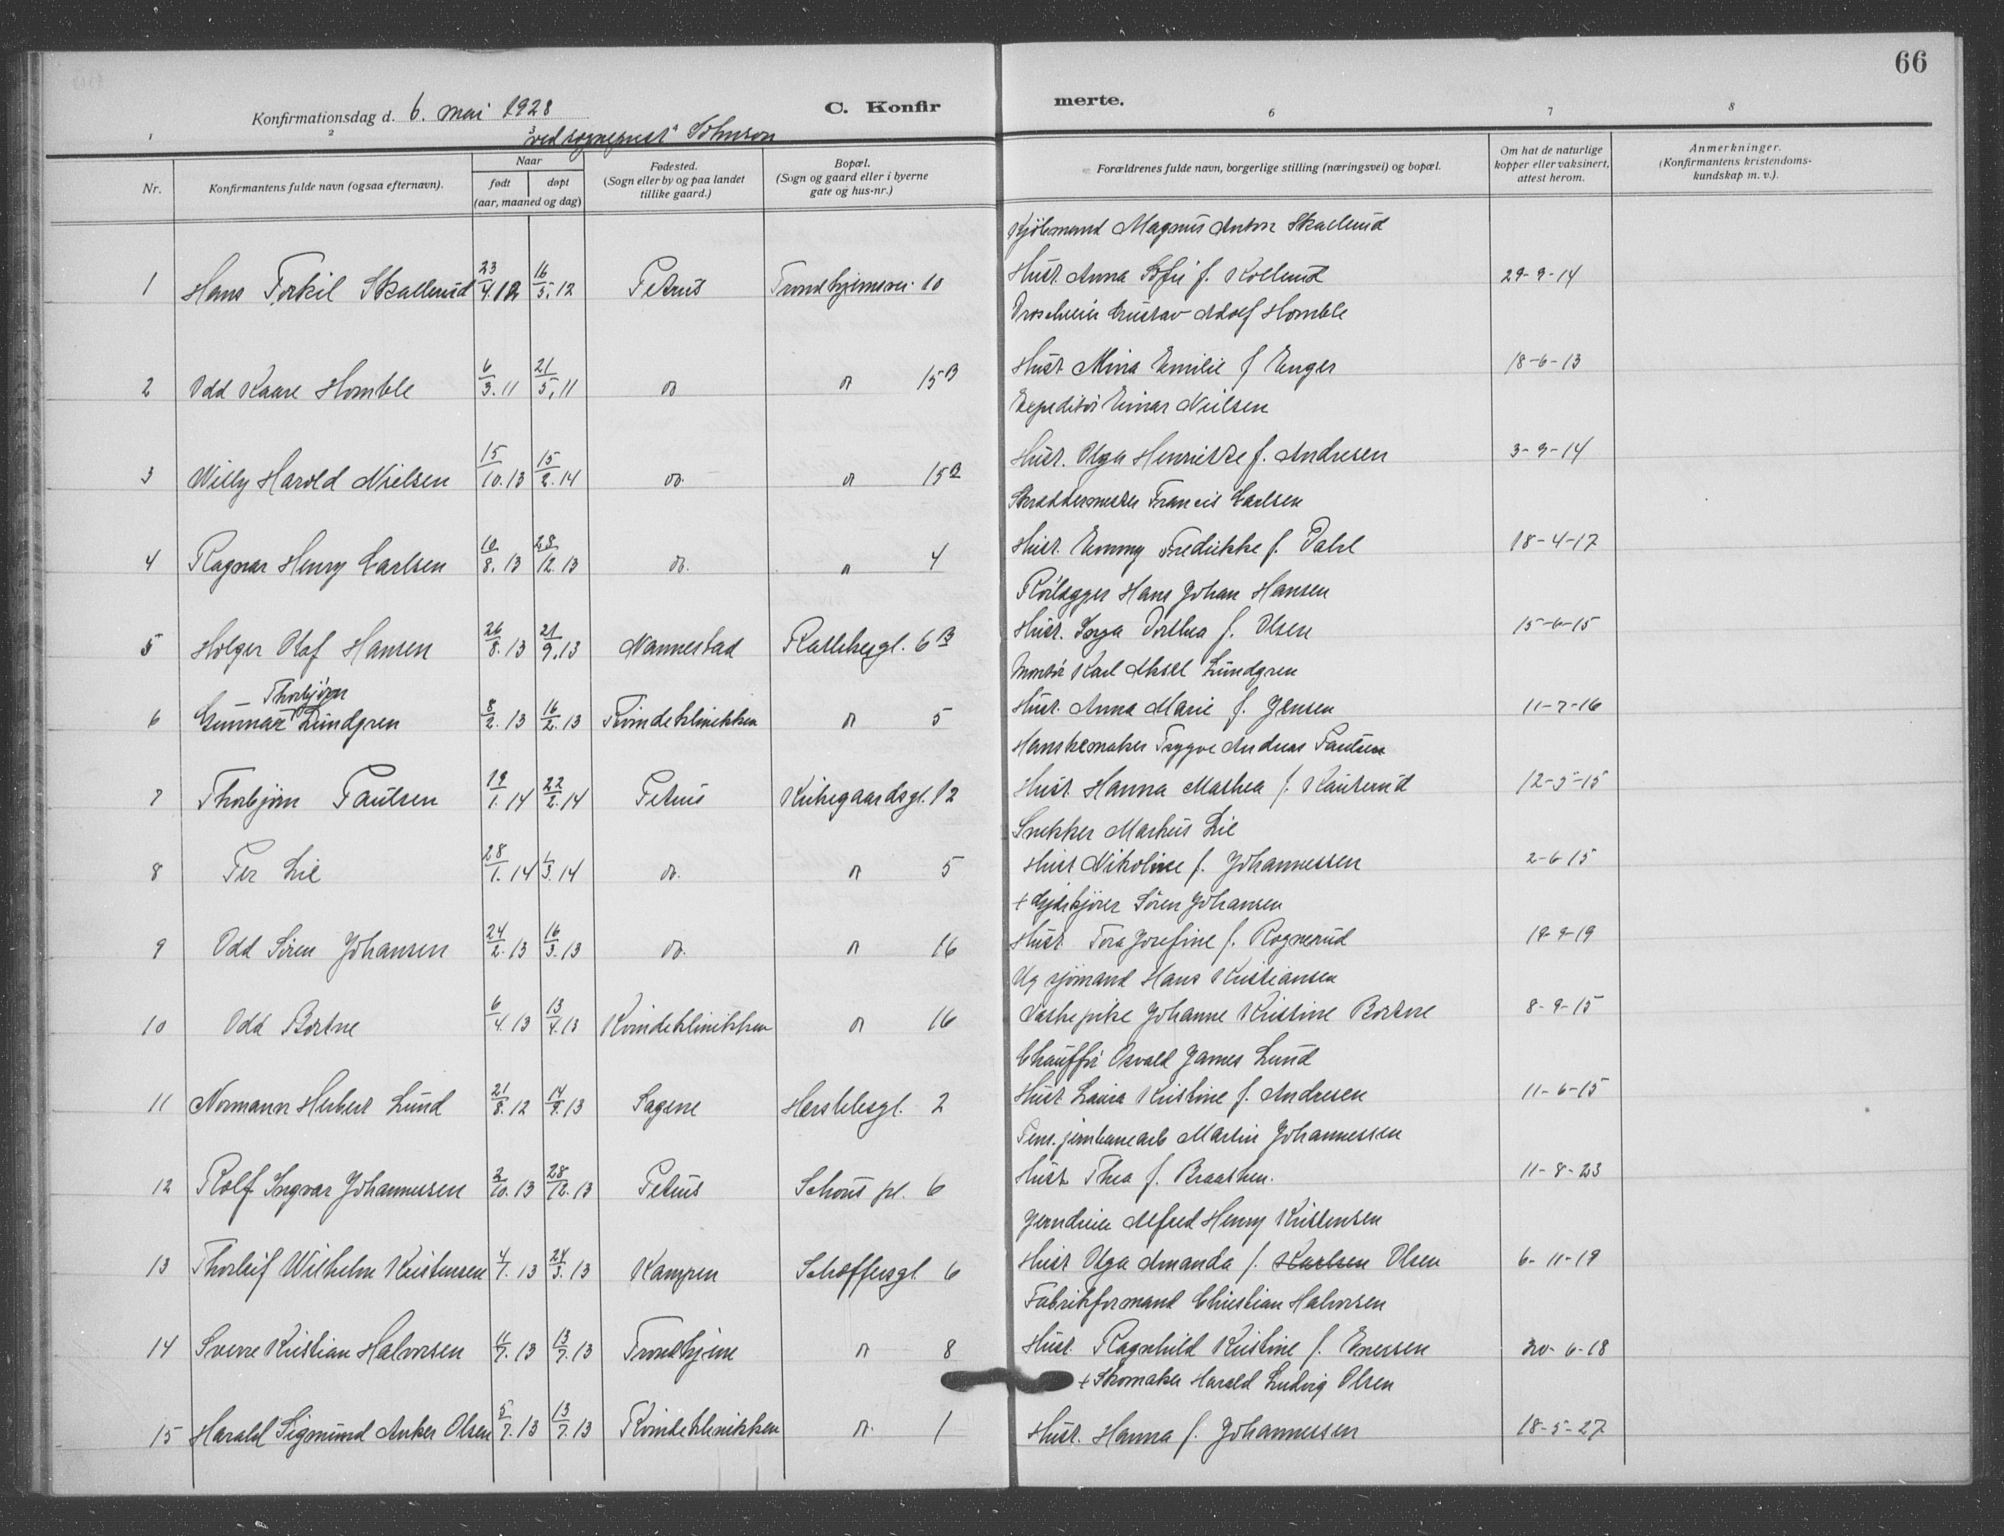 66
Konfirmationsdag d. 6. mai 1928
C. Konfirmerte.
ved sogneprest Johnson
1 2 3 4 6 7 8
Nr.
Konfirmantens fulde navn (ogsaa efternavn).
Naar
født døpt
(aar, maaned og dag)
Fødested.
(Sogn eller by og paa landet
tillike gaard.)
Bopæl.
(Sogn og gaard eller i byerne
gate og hus-nr.)
Forældrenes fulde navn, borgerlige stilling (næringsvei) og bopæl.
Om hat de naturlige
kopper eller vaksinert,
attest herom.
Anmerkninger.
(Konfirmantens kristendoms-
kundskap m. v.).
Kjølemand Magnus Anton Skallerud
1 Hans Torkil Skallerud 23/4.12 16/5.12 Petrus Trondhjemsvei. 10 Hust. Anna Sofie f. Kollerud 29-9-14
Droscheeier Gustav Adolf Homble
2 Odd Kaare Homble 6/3.11 21/5.11 do " 15B Hust. Mina Emilie f Enger 18-6-13
Expeditør Einar Nielsen
3 Willy Harold Nielsen 15/10.13 15/2.14 do. " 15B Hust. Olga Henrikke f. Andresen 3-9-14
Skreddermester Francis Carlsen
4 Ragnar Henry Carlsen 10/8.13 28/12.13 do. " 4 Hust. Emmy Fredrikke f. Dahl 18-4-17
Rørlægger Hans Johan Hansen
5 Holger Olaf Hansen 26/8.13 21/9.13 Nannestad Rathkesgt. 6B Hust. Inga Dorthea f. Olsen 15-6-15
Montør Karl Aksel Lundgren
6 Gunnar Thorbjørn Lundgren 8/2.13 16/2.13 Kvindeklinikken " 5 Hust. Anna Marie f. Jensen 11-7-16
Hanskemaker Trygve Andreas Paulsen
7 Thorbjørn Paulsen 19/1.14 22/2.14 Petrus Kirkegaardsgt. 12 Hust. Hanna Mathea f. Kauserud 12-5-15
Snekker Markus Lie
8 Per Lie 28/1.14 1/3.14 do. " 5 Hust Nikoline f. Johannessen 2-6-15
+ Søren Johansen
9 Odd Søren Johansen 24/2.13 16/3.13 do. " 16 Hust Tora Josefine f. Rognerud 19-9-19
Ug sjømand Hans Kristiansen
10 Odd Bortne 6/4.13 13/4.13 Kvindeklinikken " 16 Vaskepike Johanne Kristine Bortne 8-9-15
Chauffør Osvald James Lund
11 Normann Herbert Lund 21/8.12 14/9.13 Sagene Herslebsgt. 2 Hust Laura Kristine f. Andresen 11-6-15
Pens. jernbanearb Martin Johannessen
12 Rolf Ingvar Johannessen 2/10.13 28/12.13 Petrus Schous pl. 6 Hust Thea f. Braathen. 11-8-23
Jerndreier Alfred Henry Kristensen
13 Thorleif Wilhelm Kristensen 4/1.13 24/3.13 Kampen Schæffersgt 6 Hust Olga Amanda f. Karlsen Olsen 6-11-19
Fabrikformand Christian Halvorsen
14 Sverre Kristian Halvorsen 11/7.13 13/7.13 Trondhjem " 8 Hust. Ragnhild Kristine f. Enersen 30-6-18
+ Skomaker Harald Ludvig Olsen
15 Harald Sigmund Anker Olsen 5/7.13 13/7.13 Kvindeklinikken " 1 Hust. Hanna f. Johannessen 18-5-27